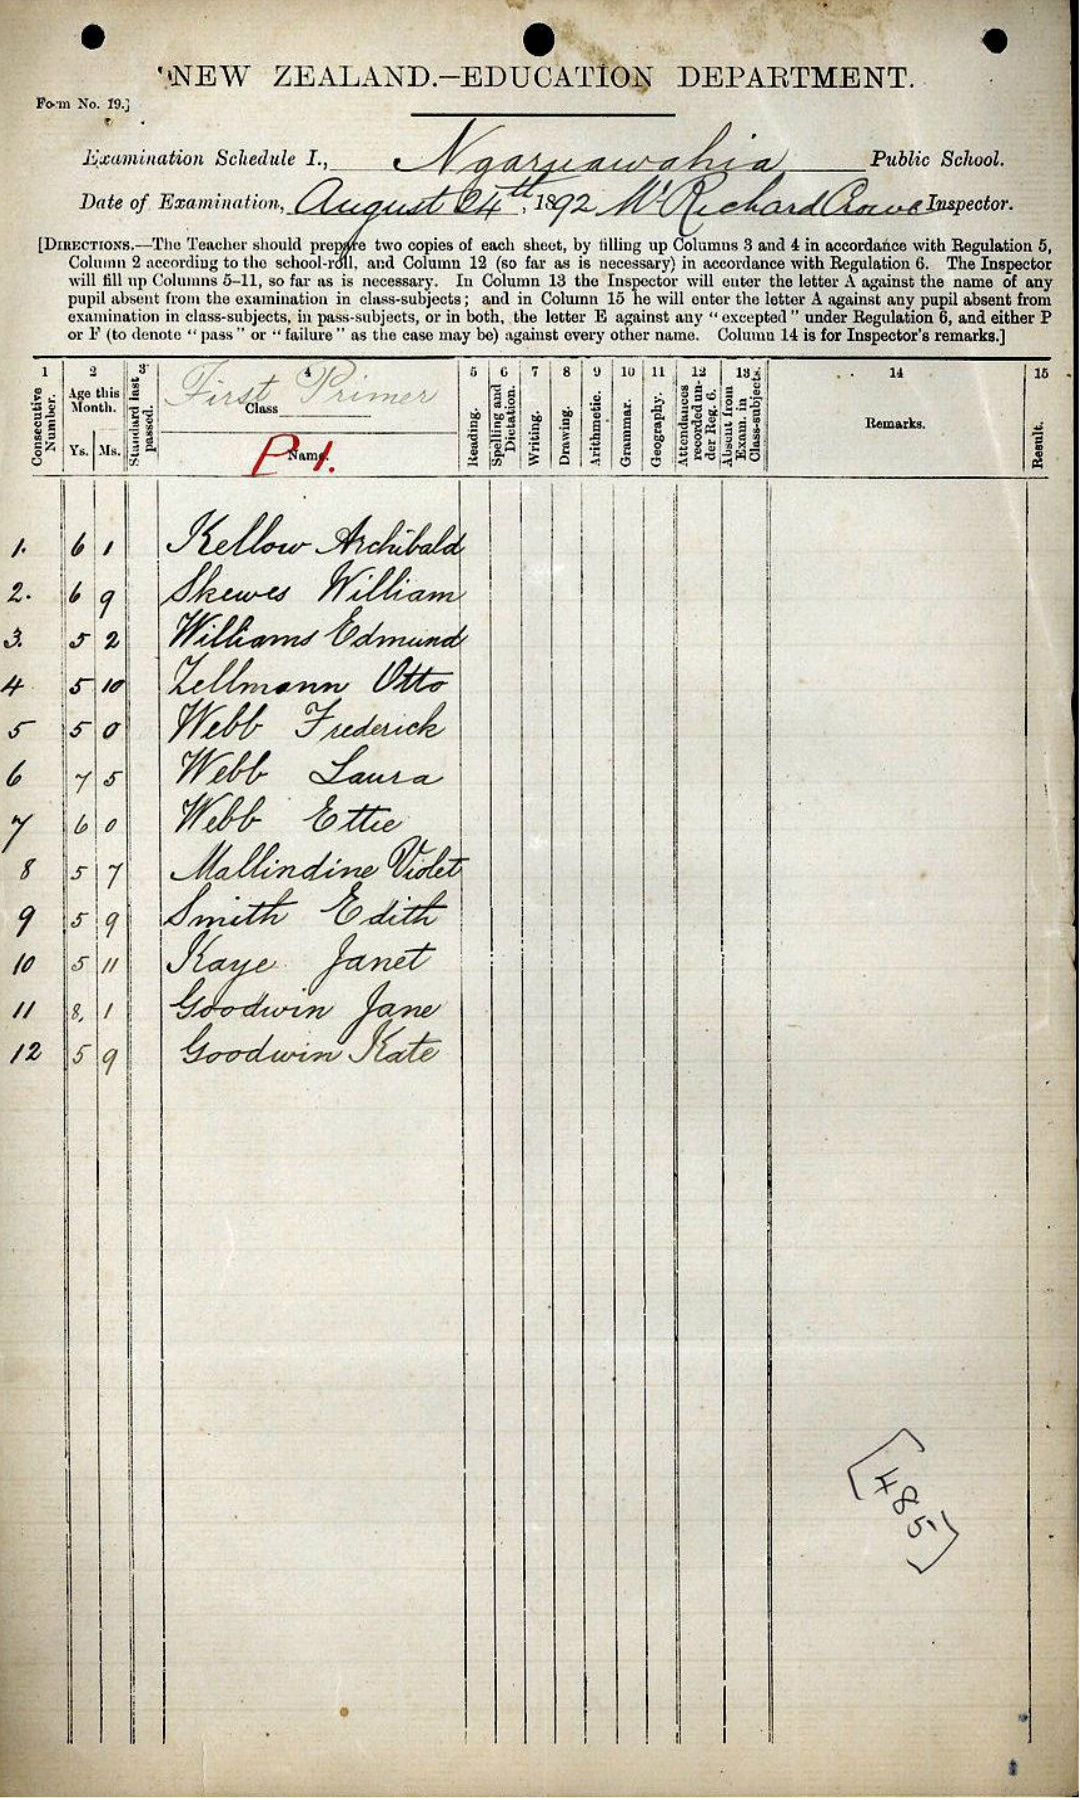 NEW ZEALAND.—EDUCATION DEPARTMENT.
Form No. 19.]
Examination Schedule I., Ngaruawahia Public School.
Date of Examination, August 24th, 1892 Mr Richard Crowe Inspector.
[DIRECTIONS.—The Teacher should prepare two copies of each sheet, by filling up Columns 3 and 4 in accordance with Regulation 5,
Column 2 according to the school-roll, and Column 12 (so far as is necessary) in accordance with Regulation 6. The Inspector
will fill up Columns 5–11, so far as is necessary. In Column 13 the Inspector will enter the letter A against the name of any
pupil absent from the examination in class-subjects; and in Column 15 he will enter the letter A against any pupil absent from
examination in class-subjects, in pass-subjects, or in both, the letter E against any "excepted" under Regulation 6, and either P
or F (to denote "pass" or "failure" as the case may be) against every other name. Column 14 is for Inspector's remarks.]
1 2 3 4 5 6 7 8 9 10 11 12 13 14 15
Consecutive Number.
Age this Month.
Ys. Ms.
Standard last passed.
First Primer
Class
P 1.
Name.
Reading.
Spelling and Dictation.
Writing.
Drawing.
Arithmetic.
Grammar.
Geography.
Attendances recorded under Reg. 6.
Absent from Exam. in Class-subjects.
Remarks.
Result.
1. 6 1 Kellow Archibald
2. 6 9 Skewes William
3. 5 2 Williams Edmund
4 5 10 Zellmann Otto
5 5 0 Webb Frederick
6 7 5 Webb Laura
7 6 0 Webb Ettie
8 5 7 Mallindine Violet
9 5 9 Smith Edith
10 5 11 Kaye Janet
11 8, 1 Goodwin Jane
12 5 9 Goodwin Kate
[485]